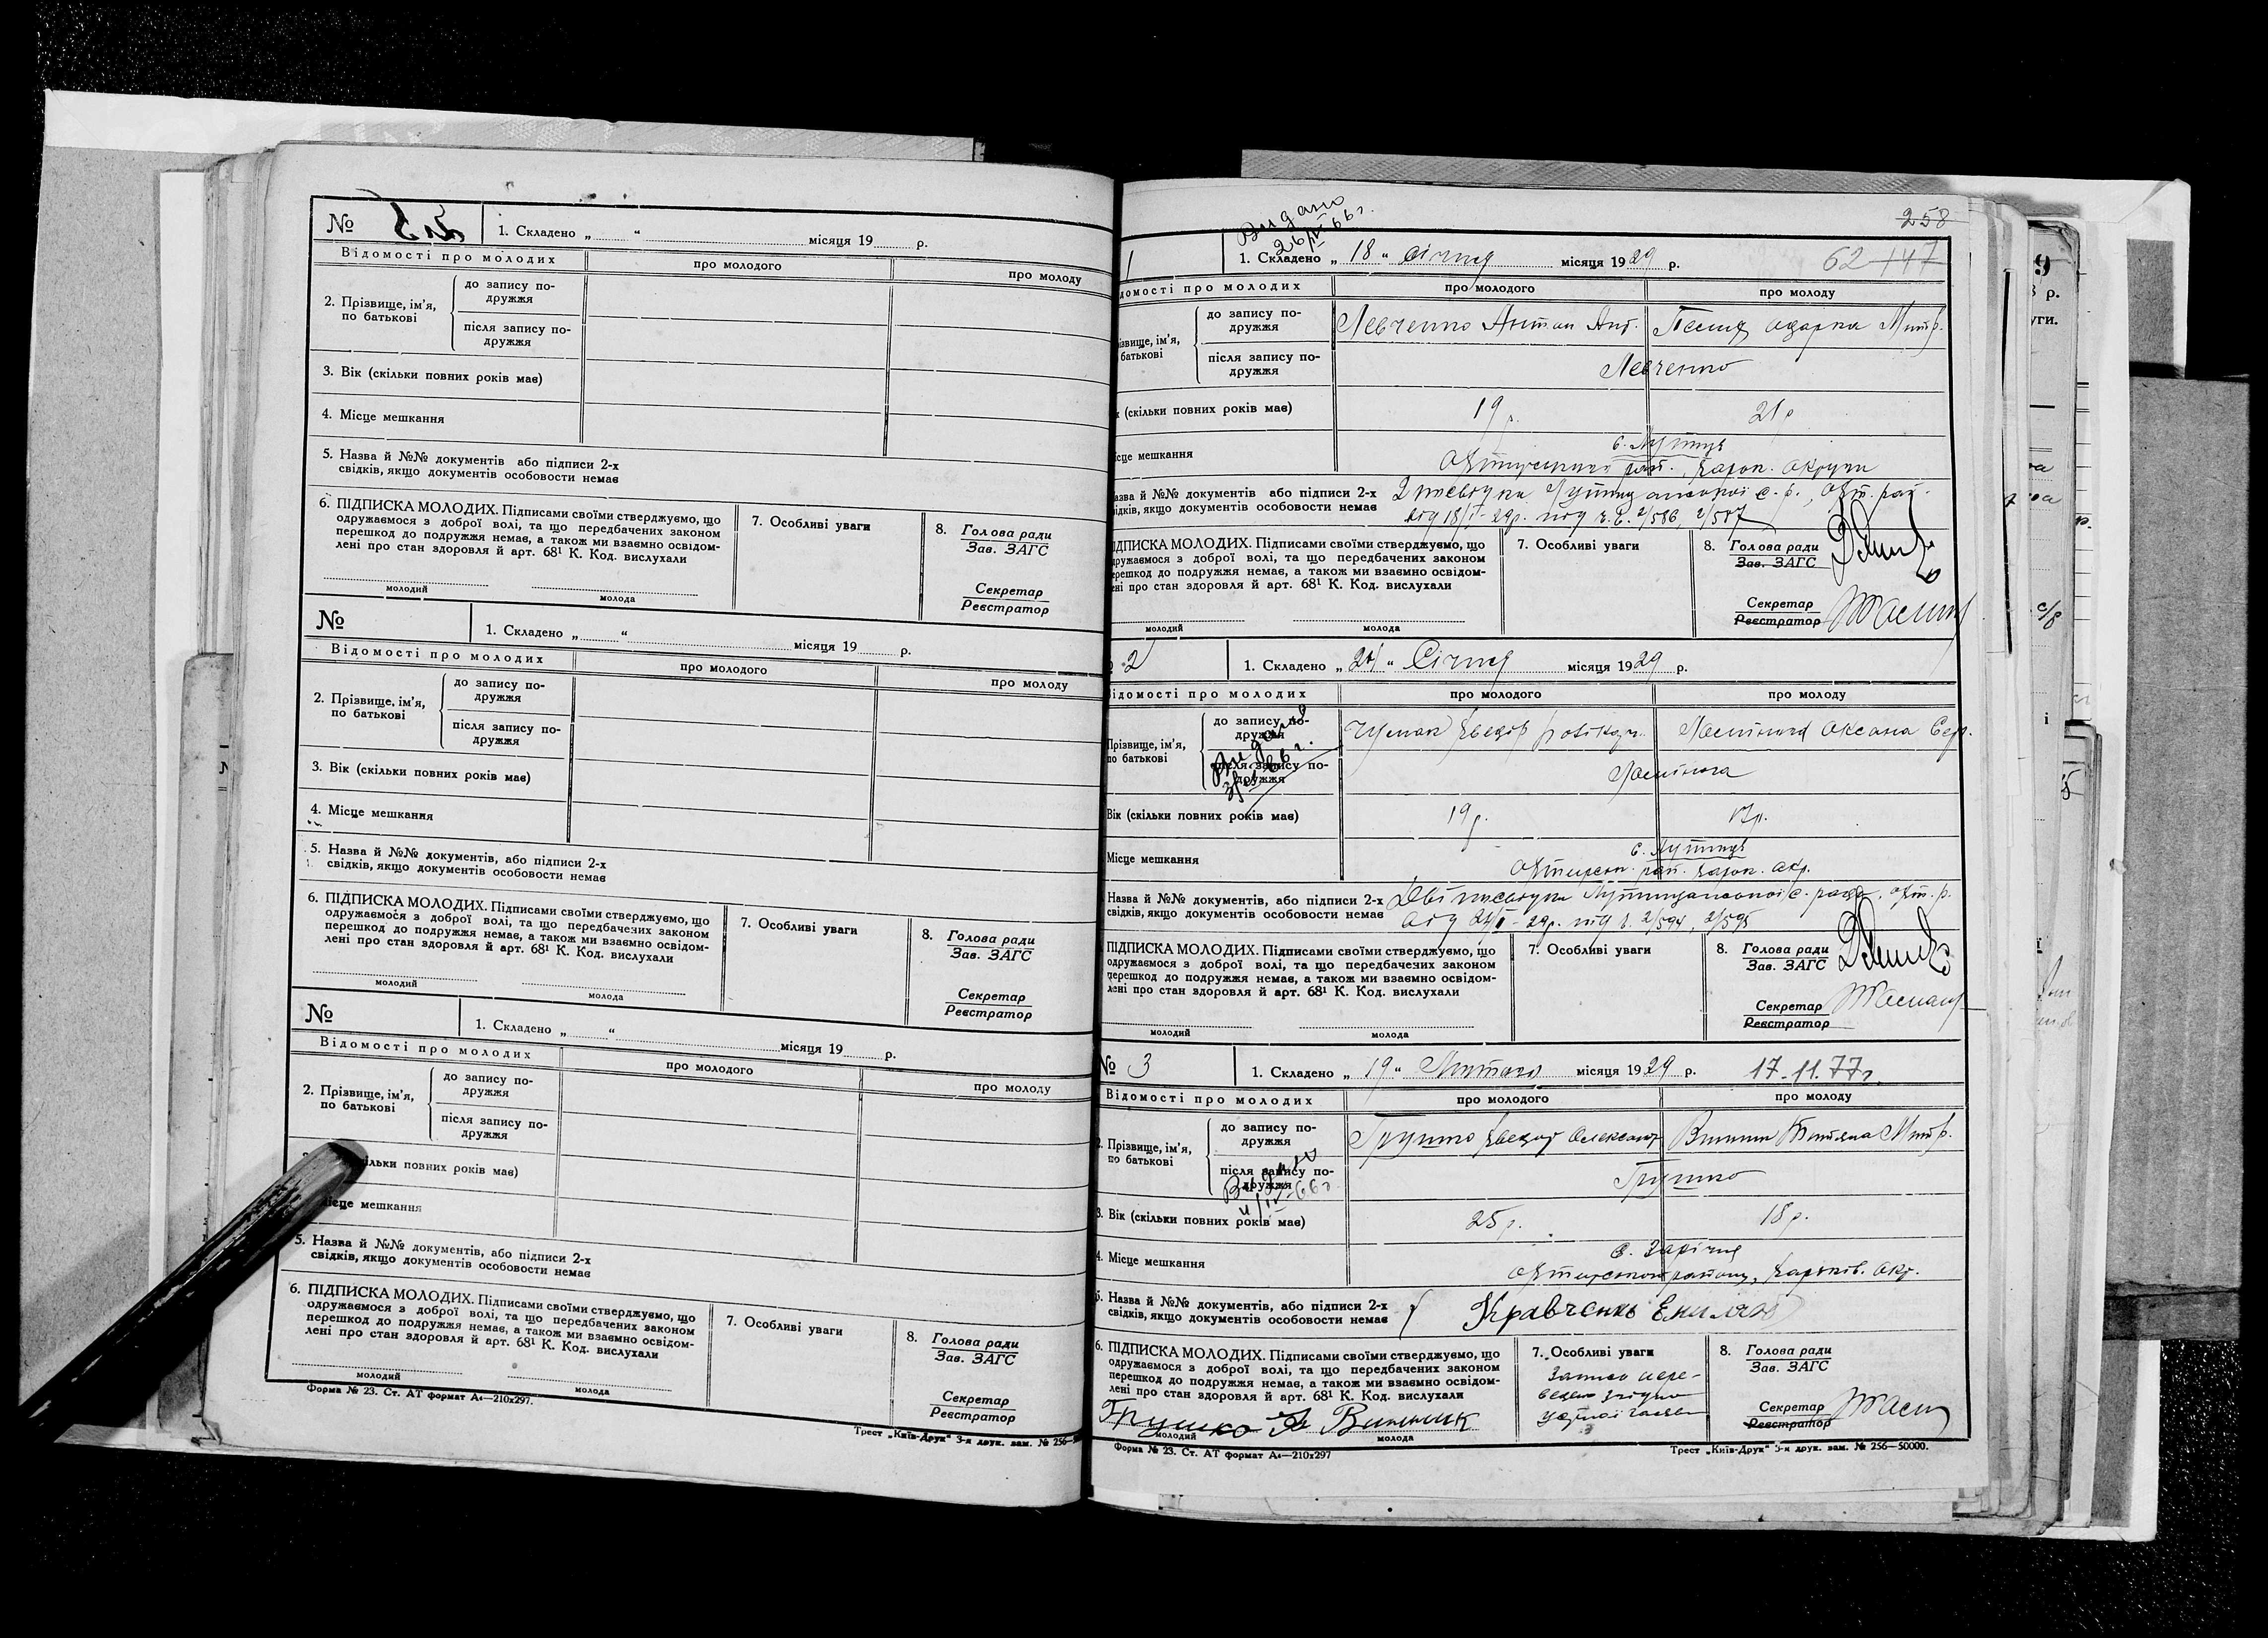 №
1. Складено „ “ місяця 19 р.
Відомості про молодих
про молодого
про молоду
2. Прізвище, ім’я, по батькові
до запису по-
дружжя
після запису по-
дружжя
3. Вік (скільки повних років має)
4. Місце мешкання
5. Назва й №№ документів або підписи 2-х
свідків, якщо документів особовости немає
6. ПІДПИСКА МОЛОДИХ. Підписами своїми стверджуємо, що
одружаємося з доброї волі, та що передбачених законом
перешкод до подружжя немає, а також ми взаємно освідом-
лені про стан здоровля й арт. 68¹ К. Код. вислухали
молодий
молода
7. Особливі уваги
8. Голова ради
Зав. ЗАГС
Секретар
Реєстратор
№
1. Складено „ “ місяця 19 р.
Відомості про молодих
про молодого
про молоду
2. Прізвище, ім’я, по батькові
до запису по-
дружжя
після запису по-
дружжя
3. Вік (скільки повних років має)
4. Місце мешкання
5. Назва й №№ документів, або підписи 2-х
свідків, якщо документів особовости немає
6. ПІДПИСКА МОЛОДИХ. Підписами своїми стверджуємо, що
одружаємося з доброї волі, та що передбачених законом
перешкод до подружжя немає, а також ми взаємно освідом-
лені про стан здоровля й арт. 68¹ К. Код. вислухали
молодий
молода
7. Особливі уваги
8. Голова ради
Зав. ЗАГС
Секретар
Реєстратор
№
1. Складено „ “ місяця 19 р.
Відомості про молодих
про молодого
про молоду
2. Прізвище, ім’я, по батькові
до запису по-
дружжя
після запису по-
дружжя
ільки повних років має)
ісце мешкання
5. Назва й №№ документів, або підписи 2-х
свідків, якщо документів особовости немає
6. ПІДПИСКА МОЛОДИХ. Підписами своїми стверджуємо, що
одружаємося з доброї волі, та що передбачених законом
перешкод до подружжя немає, а також ми взаємно освідом-
лені про стан здоровля й арт. 68¹ К. Код. вислухали
молодий
молода
7. Особливі уваги
8. Голова ради
Зав. ЗАГС
Секретар
Реєстратор
Форма № 23. Ст. АТ формат А4—210х297.
Трест „Київ-Друк“ 3-я друк. зам. № 256—
258
62 147
Видано
26/IV 66 г.
1
1. Складено „ 18 “ Січня місяця 1929 р.
домості про молодих
про молодого
про молоду
ізвище, ім’я,
батькові
до запису по-
дружжя
Левченко Антон Ант.
Одарка Митр.
після запису по-
дружжя
Левченко
к (скільки повних років має)
19 р.
21 р
сце мешкання
с. Лутища
Охтирського рай., Харк. округи
азва й №№ документів або підписи 2-х
ідків, якщо документів особовости немає
2 посвідки с. р., Охт. рай.
від 18/I-29р. під ч. ч. 2/586, 2/587
ІДПИСКА МОЛОДИХ. Підписами своїми стверджуємо, що
дружаємося з доброї волі, та що передбачених законом
ерешкод до подружжя немає, а також ми взаємно освідом-
ені про стан здоровля й арт. 68¹ К. Код. вислухали
молодий
молода
7. Особливі уваги
8. Голова ради
Зав. ЗАГС
Секретар
Реєстратор
2
1. Складено „ 24 “ Січня місяця 1929 р.
ідомості про молодих
про молодого
про молоду
Прізвище, ім’я,
по батькові
до запису по-
дружжя
Чумак
Оксана Сер.
після запису по-
дружжя
Видано
66 г.
Вік (скільки повних років має)
19 р.
17 р.
Місце мешкання
с. Лутища
Охтирськ. рай. Харк. окр.
Назва й №№ документів, або підписи 2-х
свідків, якщо документів особовости немає
Дві посвідки с. ради, Охт. р.
від 24/I-29р. під ч. 2/594, 2/595
ПІДПИСКА МОЛОДИХ. Підписами своїми стверджуємо, що
одружаємося з доброї волі, та що передбачених законом
перешкод до подружжя немає, а також ми взаємно освідом-
лені про стан здоровля й арт. 68¹ К. Код. вислухали
молодий
молода
7. Особливі уваги
8. Голова ради
Зав. ЗАГС
Секретар
Реєстратор
№ 3
1. Складено „ 19 “ Лютого місяця 1929 р.
17-11.77г.
Відомості про молодих
про молодого
про молоду
2. Прізвище, ім’я,
по батькові
до запису по-
дружжя
Грушко Олексан
Винник Тетяна Митр.
після запису по-
дружжя
Грушко
Видано
66г
3. Вік (скільки повних років має)
25 р.
18 р.
4. Місце мешкання
с. Зарічня
Охтирського району, Харків. окр.
5. Назва й №№ документів, або підписи 2-х
свідків, якщо документів особовости немає
Кравченко
6. ПІДПИСКА МОЛОДИХ. Підписами своїми стверджуємо, що
одружаємося з доброї волі, та що передбачених законом
перешкод до подружжя немає, а також ми взаємно освідом-
лені про стан здоровля й арт. 68¹ К. Код. вислухали
Грушко
Винник
молодий
молода
7. Особливі уваги
8. Голова ради
Зав. ЗАГС
Секретар
Реєстратор
Форма № 23. Ст. АТ формат А4—210х297
Трест „Київ-Друк“ 3-я друк. зам. № 256—50000.